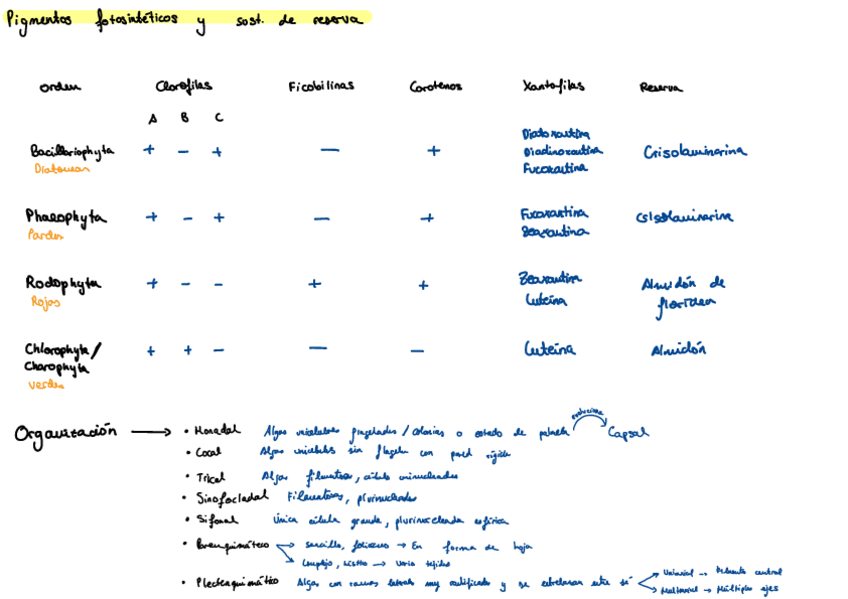 Pigmentos fotosintéticos y sost. de reserva
orden Clorofilas Ficobilinas Carotenos Xantofilas Reserva
A B C
Bacillariophyta + - + - + Diatoxantina Diadinoxantina Fucoxantina Crisolaminarina
Diatomeas
Phaeophyta + - + - + Fucoxantina Zeaxantina Crisolaminarina
Pardas
Rodophyta + - - + + Zeaxantina Luteína Almidón de floridea
Rojas
Chlorophyta/ Charophyta + + - - - Luteína Almidón
verdes
Organización → • Monadal Algas unicelulares flageladas / colonias o estado de palmela evoluciona Capsal
• Cocal Algas unicelulares sin flagelo con pared rígida
• Trical Algas filamentosas, célula uninucleadas
• Sinofocladal Filamentosas, plurinucleadas
• Sifonal única célula grande, plurinucleada esférica
• Parenquimático → sencillo, foliáceo → En forma de hoja
→ Complejo, → Varios tejidos
• Plectenquimático Algas con ramas laterales muy ramificadas y se entrelazan entre sí → Uniaxial → Filamento central
→ Multiaxial → Múltiples ejes